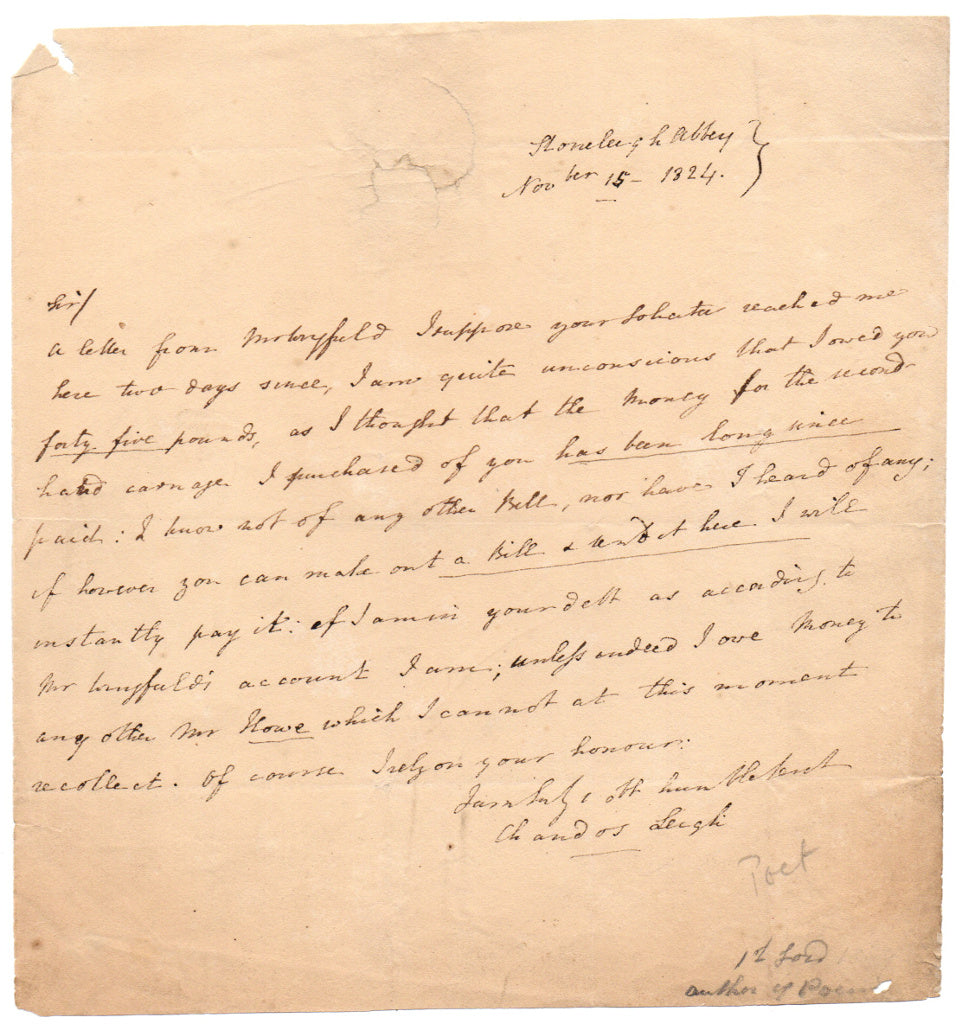 Stoneleigh Abbey
Novber 15 - 1824.
Sir/
A letter from Mr Wingfield I suppose your Solicitor reached me
here two days since, I am quite unconscious that I owed you
forty five pounds, as I thought that the Money for the second
hand carriage I purchased of you has been long since
paid: I know not of any other Bill, nor have I heard of any;
if however you can make out a Bill & send it here I will
instantly pay it: if I am in your debt as according to
Mr Wingfield's account I am; unless indeed I owe Money to
any other Mr Howe which I cannot at this moment
recollect. Of course I rely on your honour:
I am Sir yr obt humble Servt
Chandos Leigh
Poet
1st Lord
author of Poems